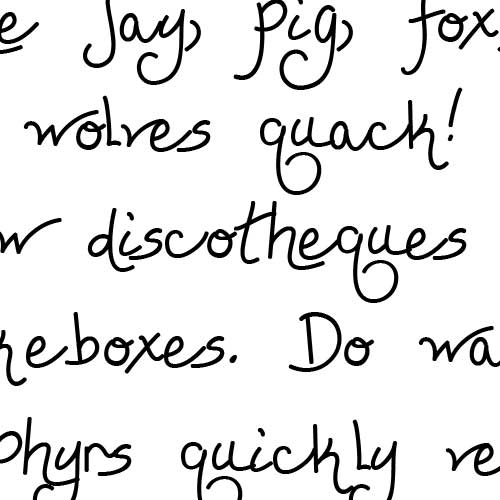 e Jay, pig, fox,
wolves quack!
w discotheques
keboxes. Do wa
phyrs quickly ve